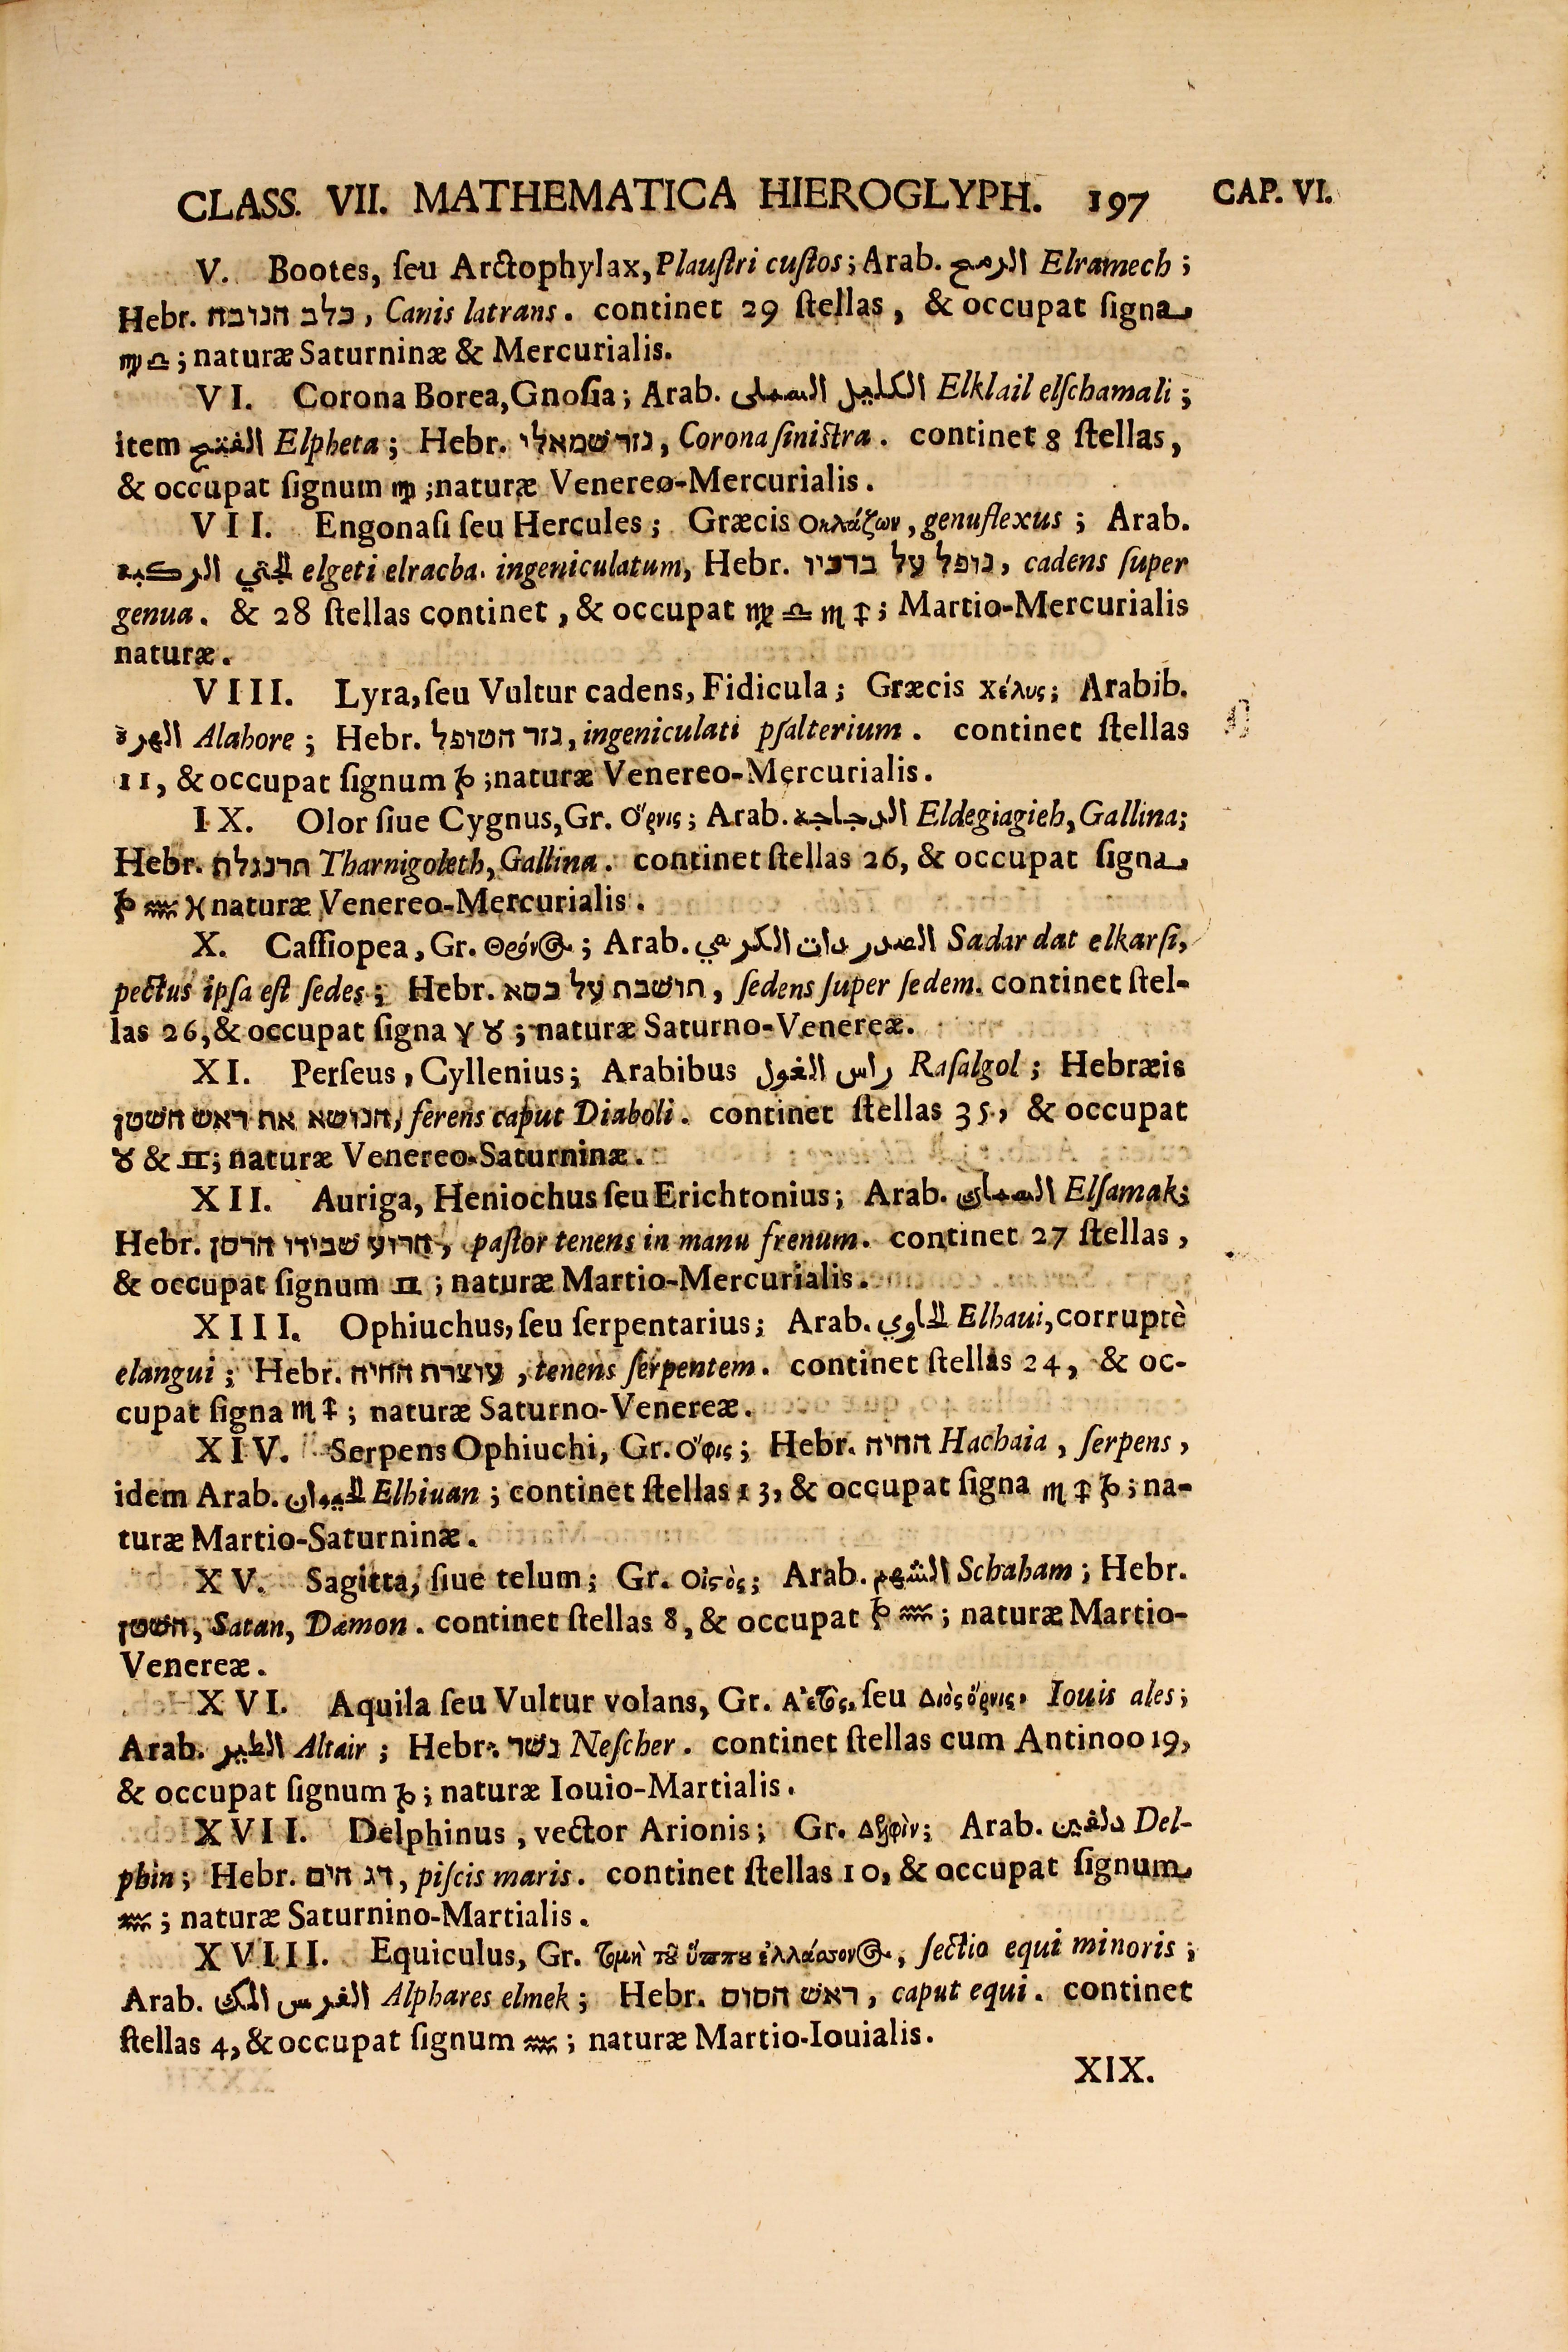 CLASS. VII. MATHEMATICA HIEROGLYPH. 197 CAP. VI.
V. Bootes, ſeu Arctophylax, Plauſtri cuſtos; Arab. الرمح Elramech;
Hebr. כלב הנובח, Canis latrans. continet 29 ſtellas, & occupat ſigna
♍♎; naturæ Saturninæ & Mercurialis.
VI. Corona Borea, Gnoſia; Arab. الكليل الشملى Elklail elſchamali;
item الفتح Elpheta; Hebr. נזר שמאלי, Corona ſiniſtra. continet 8 ſtellas,
& occupat ſignum ♍; naturæ Venereo-Mercurialis.
VII. Engonaſi ſeu Hercules; Græcis Οκλάζων, genuflexus; Arab.
الجتي الركبه elgeti elracba. ingeniculatum, Hebr. נופל על ברכיו, cadens ſuper
genua. & 28 ſtellas continet, & occupat ♍ ♎ ♏ ♐; Martio-Mercurialis
naturæ.
VIII. Lyra, ſeu Vultur cadens, Fidicula; Græcis χέλυς; Arabib.
الهرة Alahore; Hebr. נזר הטופל, ingeniculati pſalterium. continet ſtellas
11, & occupat ſignum ♑; naturæ Venereo-Mercurialis.
IX. Olor ſiue Cygnus, Gr. Ὄρνις; Arab. الدجاجه Eldegiagieh, Gallina;
Hebr. תרנגלת Tharnigoleth, Gallina. continet ſtellas 26, & occupat ſigna
♑ ♒ ♓ naturæ Venereo-Mercurialis.
X. Caſſiopea, Gr. Θρόνος; Arab. الصدر دات الكرسي Sadar dat elkarſi,
pectus ipſa eſt ſedes; Hebr. הושבת על כסא, ſedens ſuper ſedem. continet ſtel-
las 26, & occupat ſigna ♈ ♉; naturæ Saturno-Venereæ.
XI. Perſeus, Cyllenius; Arabibus راس الغول Raſalgol; Hebræis
הנושא את ראש השטן, ferens caput Diaboli. continet ſtellas 35, & occupat
♉ & ♊; naturæ Venereo-Saturninæ.
XII. Auriga, Heniochus ſeu Erichtonius; Arab. السماك Elſamak;
Hebr. הרוע שבידו הרסן, paſtor tenens in manu frenum. continet 27 ſtellas,
& occupat ſignum ♊; naturæ Martio-Mercurialis.
XIII. Ophiuchus, ſeu ſerpentarius; Arab. الحاوي Elhaui, corruptè
elangui; Hebr. עוצרת החיה, tenens ſerpentem. continet ſtellas 24, & oc-
cupat ſigna ♏ ♐; naturæ Saturno-Venereæ.
XIV. Serpens Ophiuchi, Gr. Ὄφις; Hebr. החיה Hachaia, ſerpens,
idem Arab. الحيوان Elhiuan; continet ſtellas 13, & occupat ſigna ♏ ♐ ♑; na-
turæ Martio-Saturninæ.
XV. Sagitta, ſiue telum; Gr. Οἰστὸς; Arab. الشهم Schaham; Hebr.
השטן, Satan, Dæmon. continet ſtellas 8, & occupat ♑ ♒; naturæ Martio-
Venereæ.
XVI. Aquila ſeu Vultur volans, Gr. Ἀετὸς, ſeu Διὸς ὄρνις. Iouis ales;
Arab. الطير Altair; Hebr. נשר Neſcher. continet ſtellas cum Antinoo 19,
& occupat ſignum ♑; naturæ Iouio-Martialis.
XVII. Delphinus, vector Arionis; Gr. Δελφὶν; Arab. دلفين Del-
phin; Hebr. דג הים, piſcis maris. continet ſtellas 10, & occupat ſignum
♒; naturæ Saturnino-Martialis.
XVIII. Equiculus, Gr. τομὴ τοῦ ἵππου ἐλλάσσονος, ſectio equi minoris;
Arab. الفرس المك Alphares elmek; Hebr. ראש הסוס, caput equi. continet
ſtellas 4, & occupat ſignum ♒; naturæ Martio-Iouialis.
XIX.